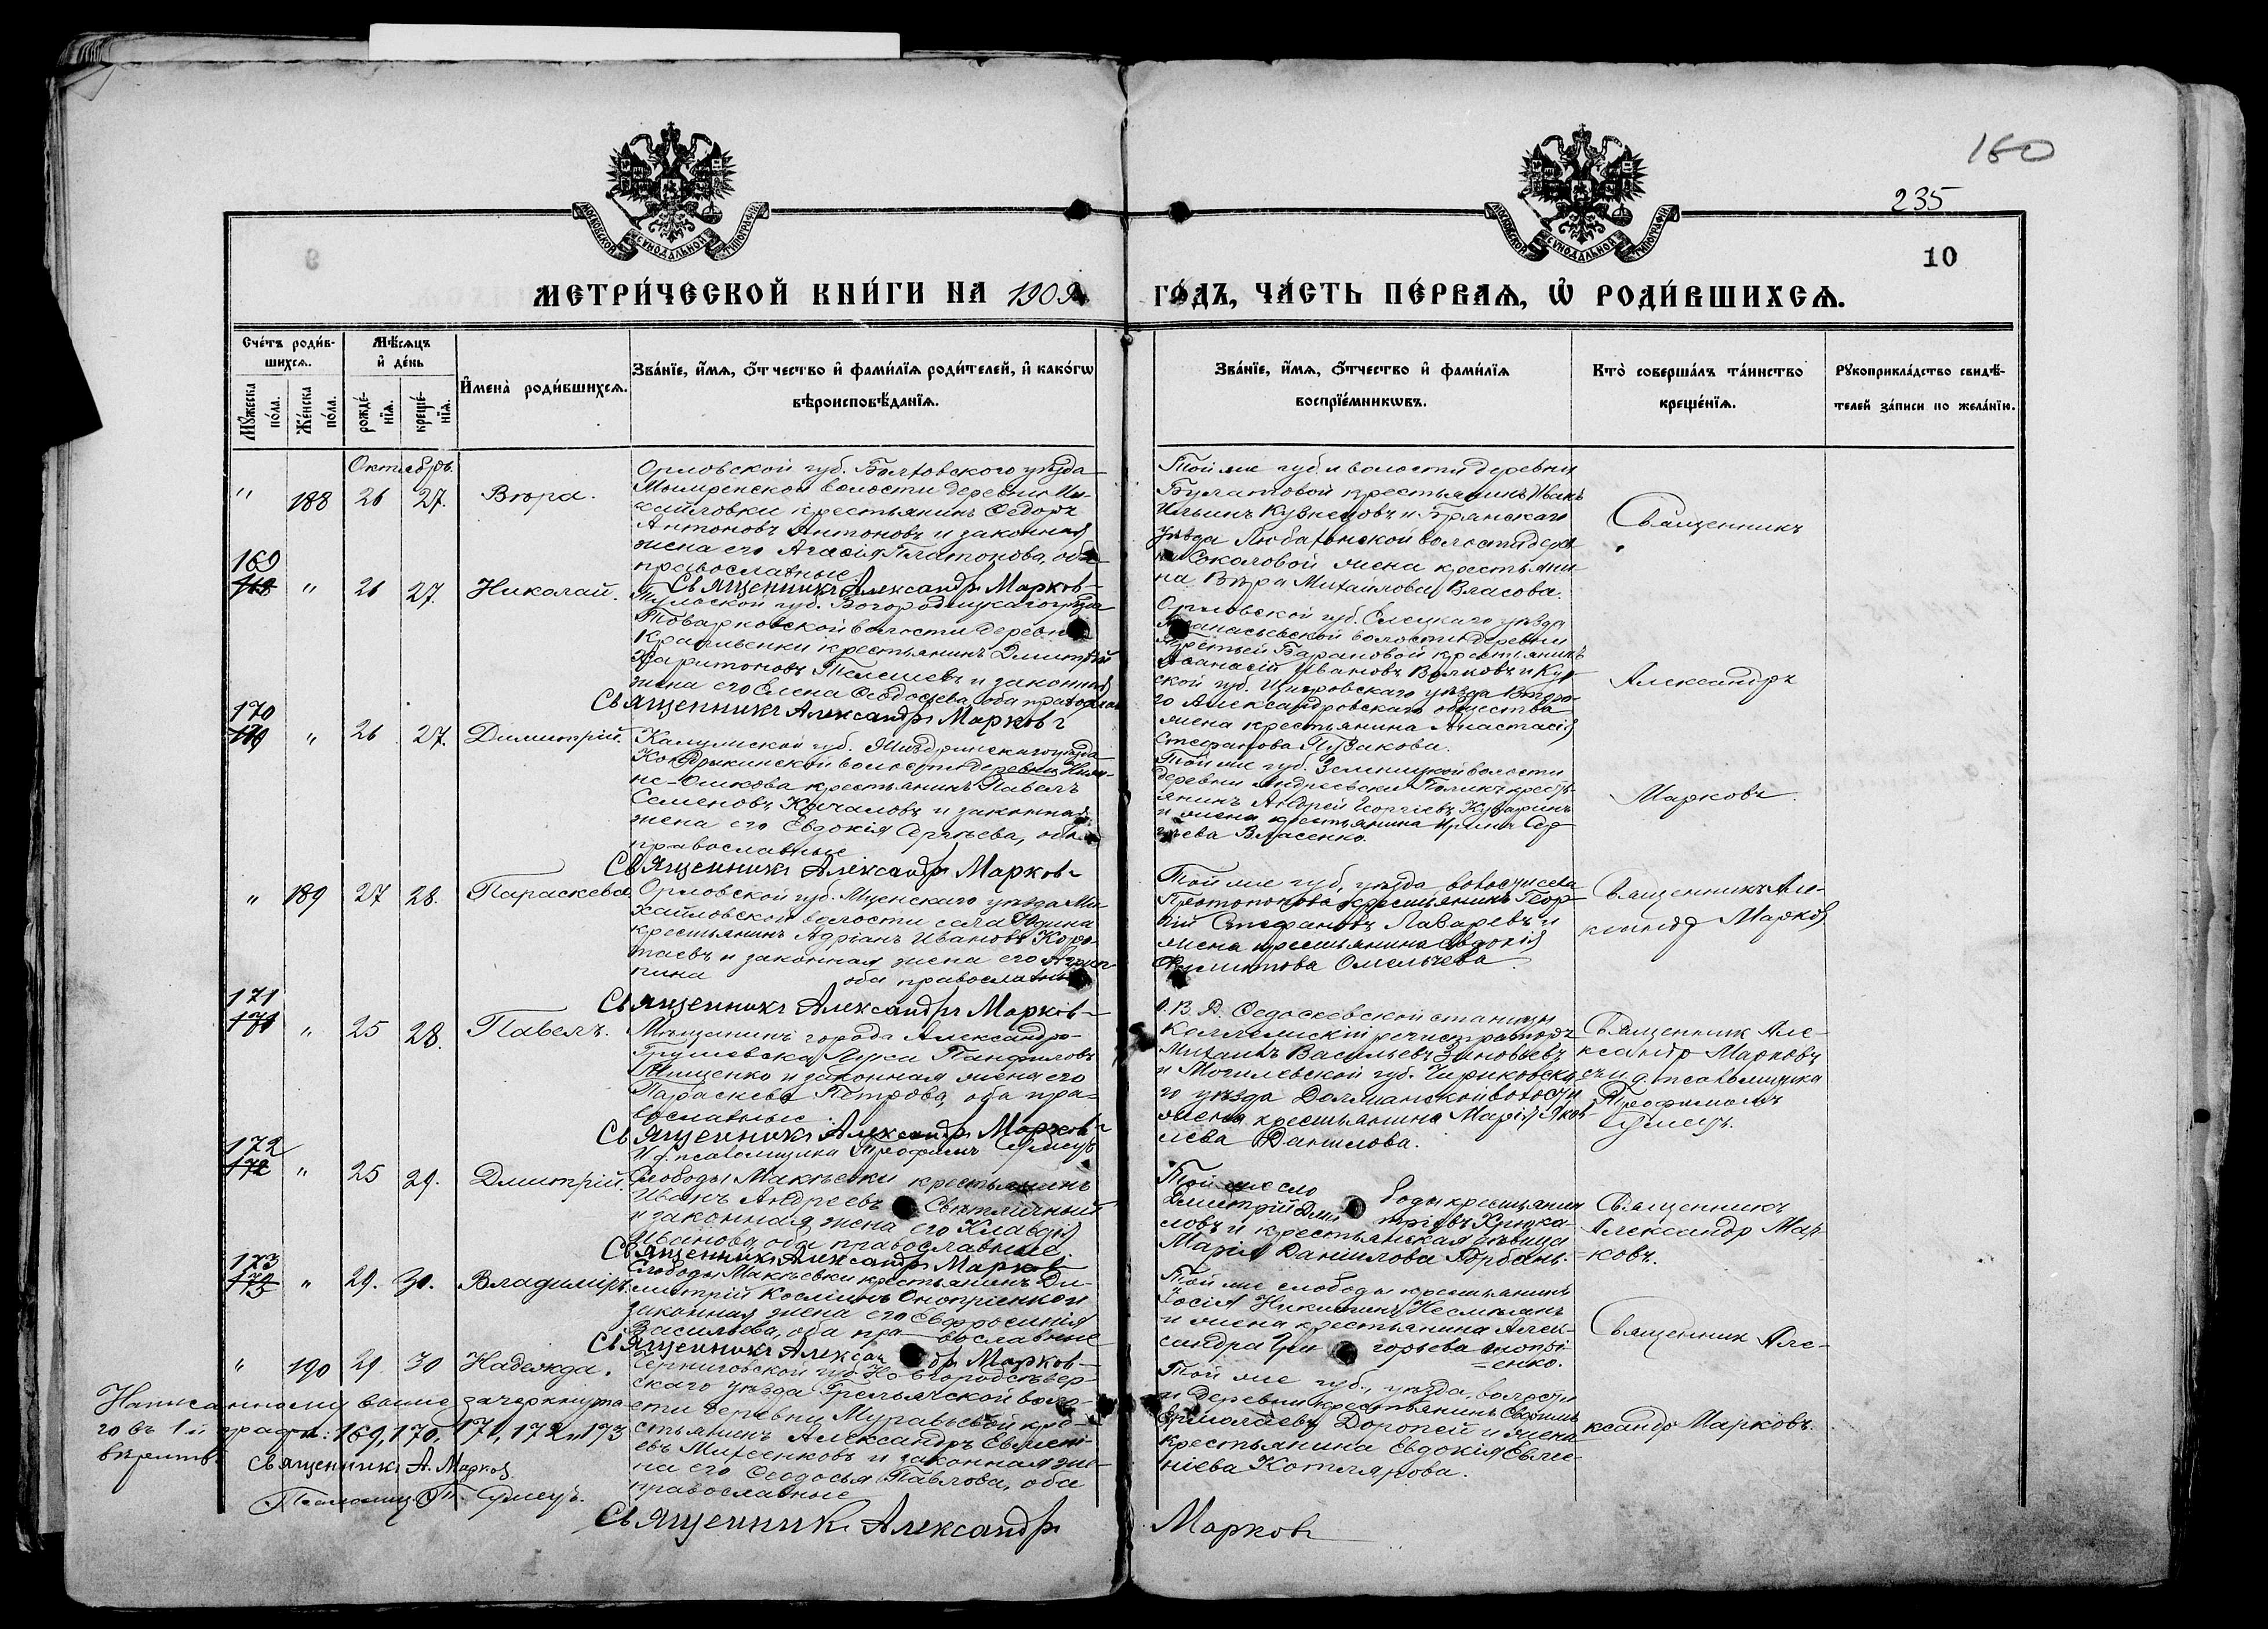 160
235
10
МОСКОВСКОЙ СѴНОДАЛЬНОЙ ТИПОГРАФІИ
МОСКОВСКОЙ СѴНОДАЛЬНОЙ ТИПОГРАФІИ
МЕТРИ́ЧЕСКОЙ КНИ́ГИ НА 1909
ГО́ДЪ, ЧА́СТЬ ПЕ́РВАѦ, Ѽ РОДИ́ВШИХСѦ.
Сче́тъ роди́в-
шихсѧ.
Мꙋ́жеска по́ла.
Же́нска по́ла.
Мѣ́сѧцъ
и҆ де́нь
рожде́-
нїѧ.
креще́-
нїѧ.
И҆мена̀ роди́вшихсѧ.
Зва́нїе, и҆́мѧ, ѻ҆́тчество и҆ фами́лїѧ роди́телей, и҆ како́гѡ
вѣроисповѣ́данїѧ.
Зва́нїе, и҆́мѧ, ѻ҆́тчество и҆ фами́лїѧ
воспрїе́мникѡвъ.
Кто̀ соверша́лъ та́инство
креще́нїѧ.
Рꙋкоприкла́дство свидѣ́-
телей за́писи по жела́нїю.
Октябрь.
" 188 26 27. Вѣра.
Орловской губ. Болховского уѣзда
Мымренской волости деревни Ми-
хайловки крестьянинъ Ѳедоръ
Антоновъ Антоновъ и законная
жена его Агаѳія Платонова, оба
православные.
Священникъ Александръ Марковъ
Той же губ. и волости деревни
Булатовой крестьянинъ Иванъ
Ильинъ Кузнецовъ и Брянскаго
уѣзда Любохонской волости дерев
ни Соколовой жена крестьяни-
на Вѣра Михайлова Власова.
Священникъ
169
168 " 26 27. Николай.
Тульской губ. Богородицкаго уѣзда
Товарковской волости деревни
крестьянинъ Дмитрій
Харитоновъ Телешевъ и законная
жена его Елена Ѳеодосіева, оба православ
Священникъ Александръ Марковъ
Орловской губ. Елецкаго уѣзда
Аѳанасьевской волости деревни
Третьей Барановой крестьянинъ
Аѳанасій Ивановъ Волковъ и Кур
ской губ. Щигровскаго уѣзда Второ
го Александровскаго общества
жена крестьянина Анастасія
Стефанова Пузакова.
Александръ
170
169 " 26 27. Димитрій.
Калужской губ. Жиздринскаго уѣзда
волости деревни Ниж-
не- крестьянинъ Павелъ
Семеновъ Качаловъ и законная
жена его Евдокія Сергѣева, оба
православные
Священникъ Александръ Марковъ
Той же губ. Земницкой волости
деревни Андреевски крестъ-
янинъ Андрей Георгіевъ
и жена крестьянина Ирина Сер-
гѣева Власенко.
Марковъ.
" 189 27 28. Параскева
Орловской губ. Мценскаго уѣзда Ми-
хайловской волости села Юдина
крестьянинъ Адріанъ Ивановъ Коро-
таевъ и законная жена его Агрип-
пина оба православные
Священникъ Александръ Марковъ
Той же губ., уѣзда волости села
Протопопова крестьянинъ Геор-
гій Стефановъ Лазаревъ и
жена крестьянина Евдокія
Филиппова Омельчева.
Священникъ Але-
ксандръ Марковъ
171
170 " 25 28. Павелъ.
Мѣщанинъ города Александро-
Грушевска Лука Панфиловъ
Тищенко и законная жена его
Параскева Петрова, оба пра-
вославные.
Священникъ Александръ Марковъ
И. д. псаломщика Трофимъ
О. В. Д. Ѳедосѣевской станицы
Коллежскій регистраторъ
Михаилъ Васильевъ Зиновьевъ
и Могилевской губ. Чериковска-
го уѣзда Должанской волости
жена крестьянина Марія Яков
лева Данилова.
Священник Але-
ксандръ Марковъ
съ и. д. псаломщика
Трофимомъ
172
172 " 25 29. Дмитрій.
Слободы Макѣевки крестьянинъ
Иванъ Андреевъ Свѣтличный
и законная жена его Клавдія
Иванова, оба православные.
Священникъ Александръ Марковъ
Той же сло боды крестьянин
Дмитрій Дми тріевъ Хрюка-
ловъ и крестьянская дѣвица
Марія Данилова Горбань.
Священникъ
Александръ Мар-
ковъ.
173
173 " 29. 30. Владиміръ.
Слободы Макѣевки крестьянинъ Ди-
митрій Косминъ Оноприенко и
законная жена его Евфросинія
Васильева, оба пра вославные
Священникъ Алексан дръ Марковъ
Той же слободы крестьянинъ
Іосія Никитинъ
и жена крестьянина Алек-
сандра Гри горьева Онопрі-
енко.
Священник Але-
" 190 29 30 Надежда.
Черниговской губ. Новгородсѣвер-
скаго уѣзда Гремячской воло-
сти деревни Муравьевой кре-
стьянинъ Александръ Евмені-
евъ Михеенковъ и законная же-
на его Ѳеодосья Павлова, оба
православные
Священникъ Александръ Марковъ
Той же губ., уѣзда, волости
и деревни крестьянинъ Евфимъ
Ермолаевъ Доропей и жена
крестьянина Евдокія Евме-
ніева Котлярова.
ксандръ Марковъ.
Написанному выше зачеркнута-
го въ 1й графѣ: 169, 170, 171, 172 и 173
вѣрить.
Священникъ А. Марковъ
Псаломщ. Т.